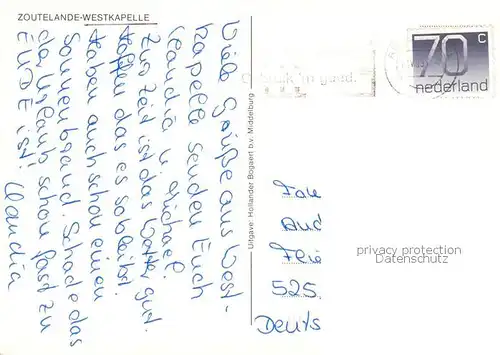 ZOUTELANDE-WESTKAPELLE
Viele Grüße aus West-
kapelle senden Euch
Claudia u. Michael
Zur Zeit ist das Wetter gut.
hoffen das es so bleibt.
haben auch schon einen
Sonnenbrand. Schade das
der Urlaub schon fast zu
ENDE ist!
Claudia
Uitgave: Hollander Bogaert b.v. Middelburg
Gebruik 'm goed.
70 c
nederland
Fam
And
525
Deuts
privacy protection
Datenschutz